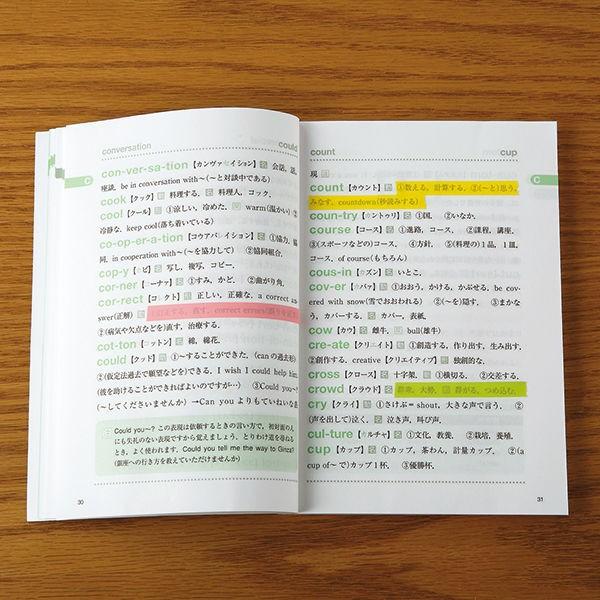 conversation could
C
con-ver-sa-tion【カンヴァセイション】名 会話, 対
座談. be in conversation with〜(〜と対談中である)
cook【クック】動 料理する. 名 料理人, コック.
cool【クール】形 ①涼しい, 冷めた. 反 warm(温かい) ②
冷静な. keep cool(落ち着いている)
co-op-er-a-tion【コウアパレイション】名 ①協力, 協
同. in cooperation with〜(〜を協力して) ②協同組合.
cop-y【カピ】名 写し, 複写, コピー.
cor-ner【コーナア】名 ①すみ, かど. ②曲がり角.
cor-rect【コレクト】形 正しい, 正確な. a correct an-
swer(正解) 動 ①訂正する, 直す. correct errors(誤りを直す)
②(病気や欠点などを)直す, 治療する.
cot-ton【コットン】名 綿, 綿花.
could【クッド】助 ①〜することができた. (can の過去形)
②(仮定法過去で願望などを)できる. I wish I could help him.
(彼を助けることができればよいのですが…) ③Could you〜?
(〜してくださいませんか) →Can you よりもていねいな表
Could you〜? この表現は依頼するときの言い方で, 初対面の人
にも失礼のない表現ですから覚えましょう. とりわけ道を尋ねる
とき, よく使われます. Could you tell me the way to Ginza?
(銀座への行き方を教えていただけませんか)
30
count cup
C
現
count【カウント】動 ①数える, 計算する. ②(〜と)思う,
みなす. countdown(秒読みする)
coun-try【カントゥリ】名 ①国. ②いなか.
course【コース】名 ①進路, コース. ②課程, 講座.
③(スポーツなどの)コース. ④方針. ⑤(料理の)1品, 1皿,
コース. of course(もちろん)
cous-in【カズン】名 いとこ.
cov-er【カバァ】動 ①おおう, かける, かぶせる. be cov-
ered with snow(雪でおおわれる) ②(〜を)隠す. ③まかな
う, カバーする. 名 カバー, 表紙.
cow【カウ】名 雌牛. 反 bull(雄牛)
cre-ate【クリエイト】動 ①創造する, 作り出す, 生み出す.
②創作する. creative【クリエイティブ】形 独創的な.
cross【クロース】名 十字架. 動 ①横切る. ②交差する.
crowd【クラウド】名 群衆, 大勢. 動 群がる, つめ込む.
cry【クライ】動 ①さけぶ= shout, 大きな声で言う. ②
(声を出して)泣く. 名 泣き声, 叫び声.
cul-ture【カルチャ】名 ①文化, 教養. ②栽培, 養殖.
cup【カップ】名 ①カップ, 茶わん, 計量カップ. ②(a
cup of〜で)カップ1杯. ③優勝杯.
31